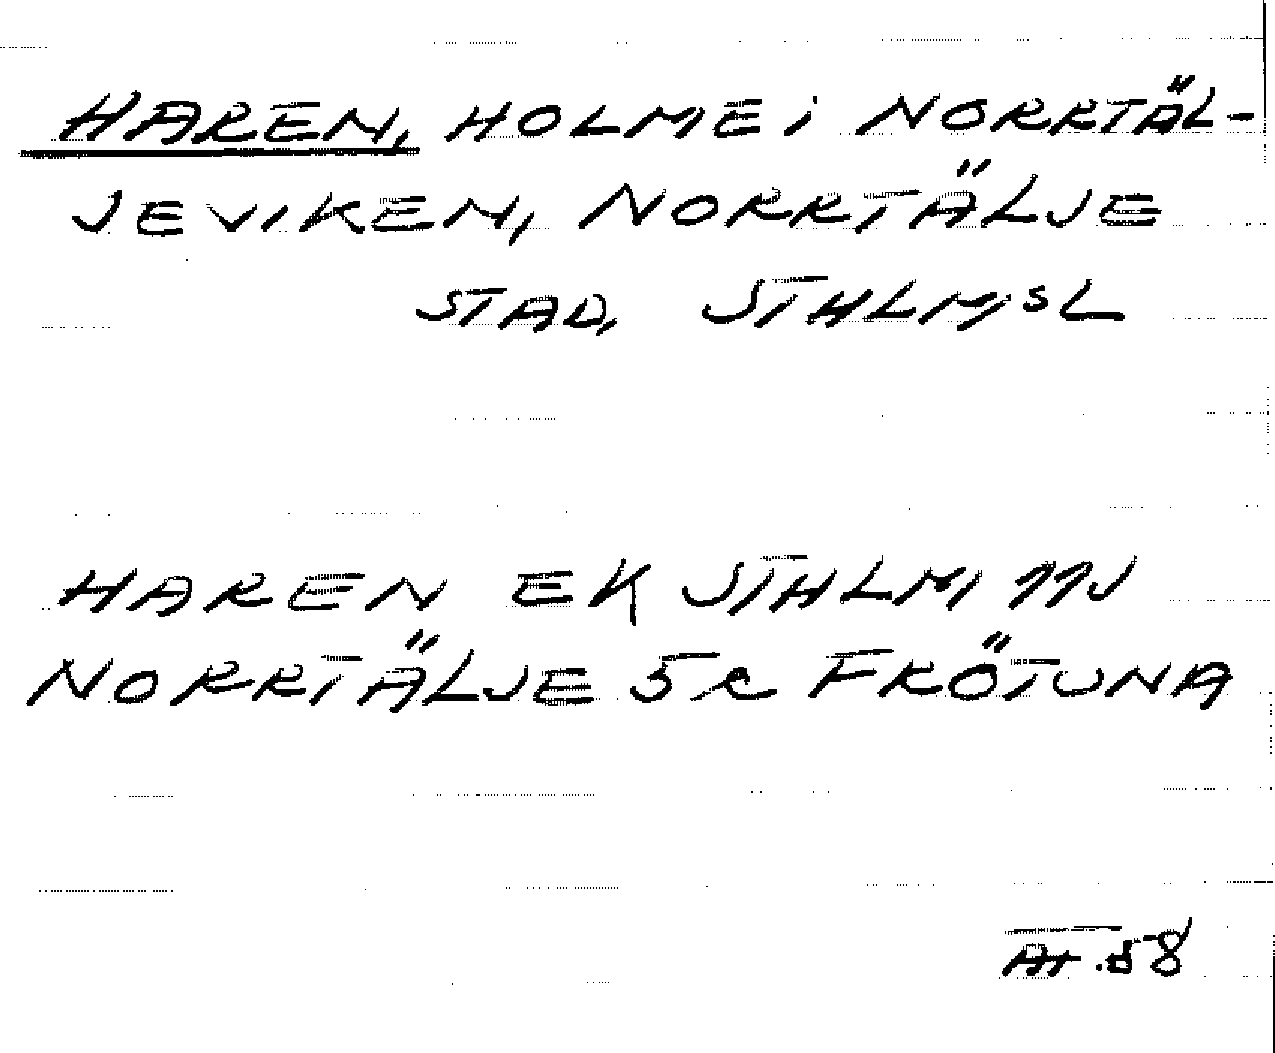 HAREN, HOLME i NORRTÄL-
JEVIKEN, NORRTÄLJE
STAD, STHLMSL
HAREN EK STHLM 11J
NORRTÄLJE 5c FRÖTUNA
At. 58